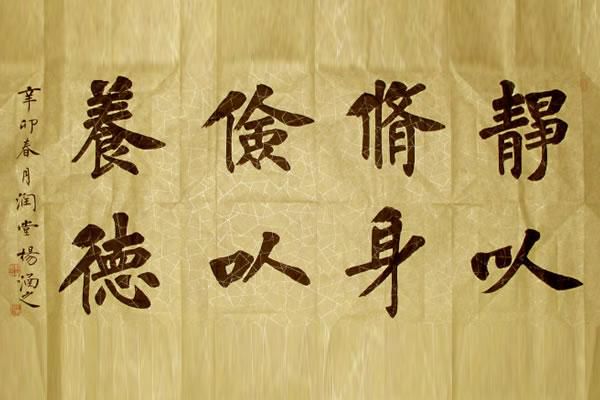 靜以
脩身
儉以
養德
辛卯春月潤堂楊涵之